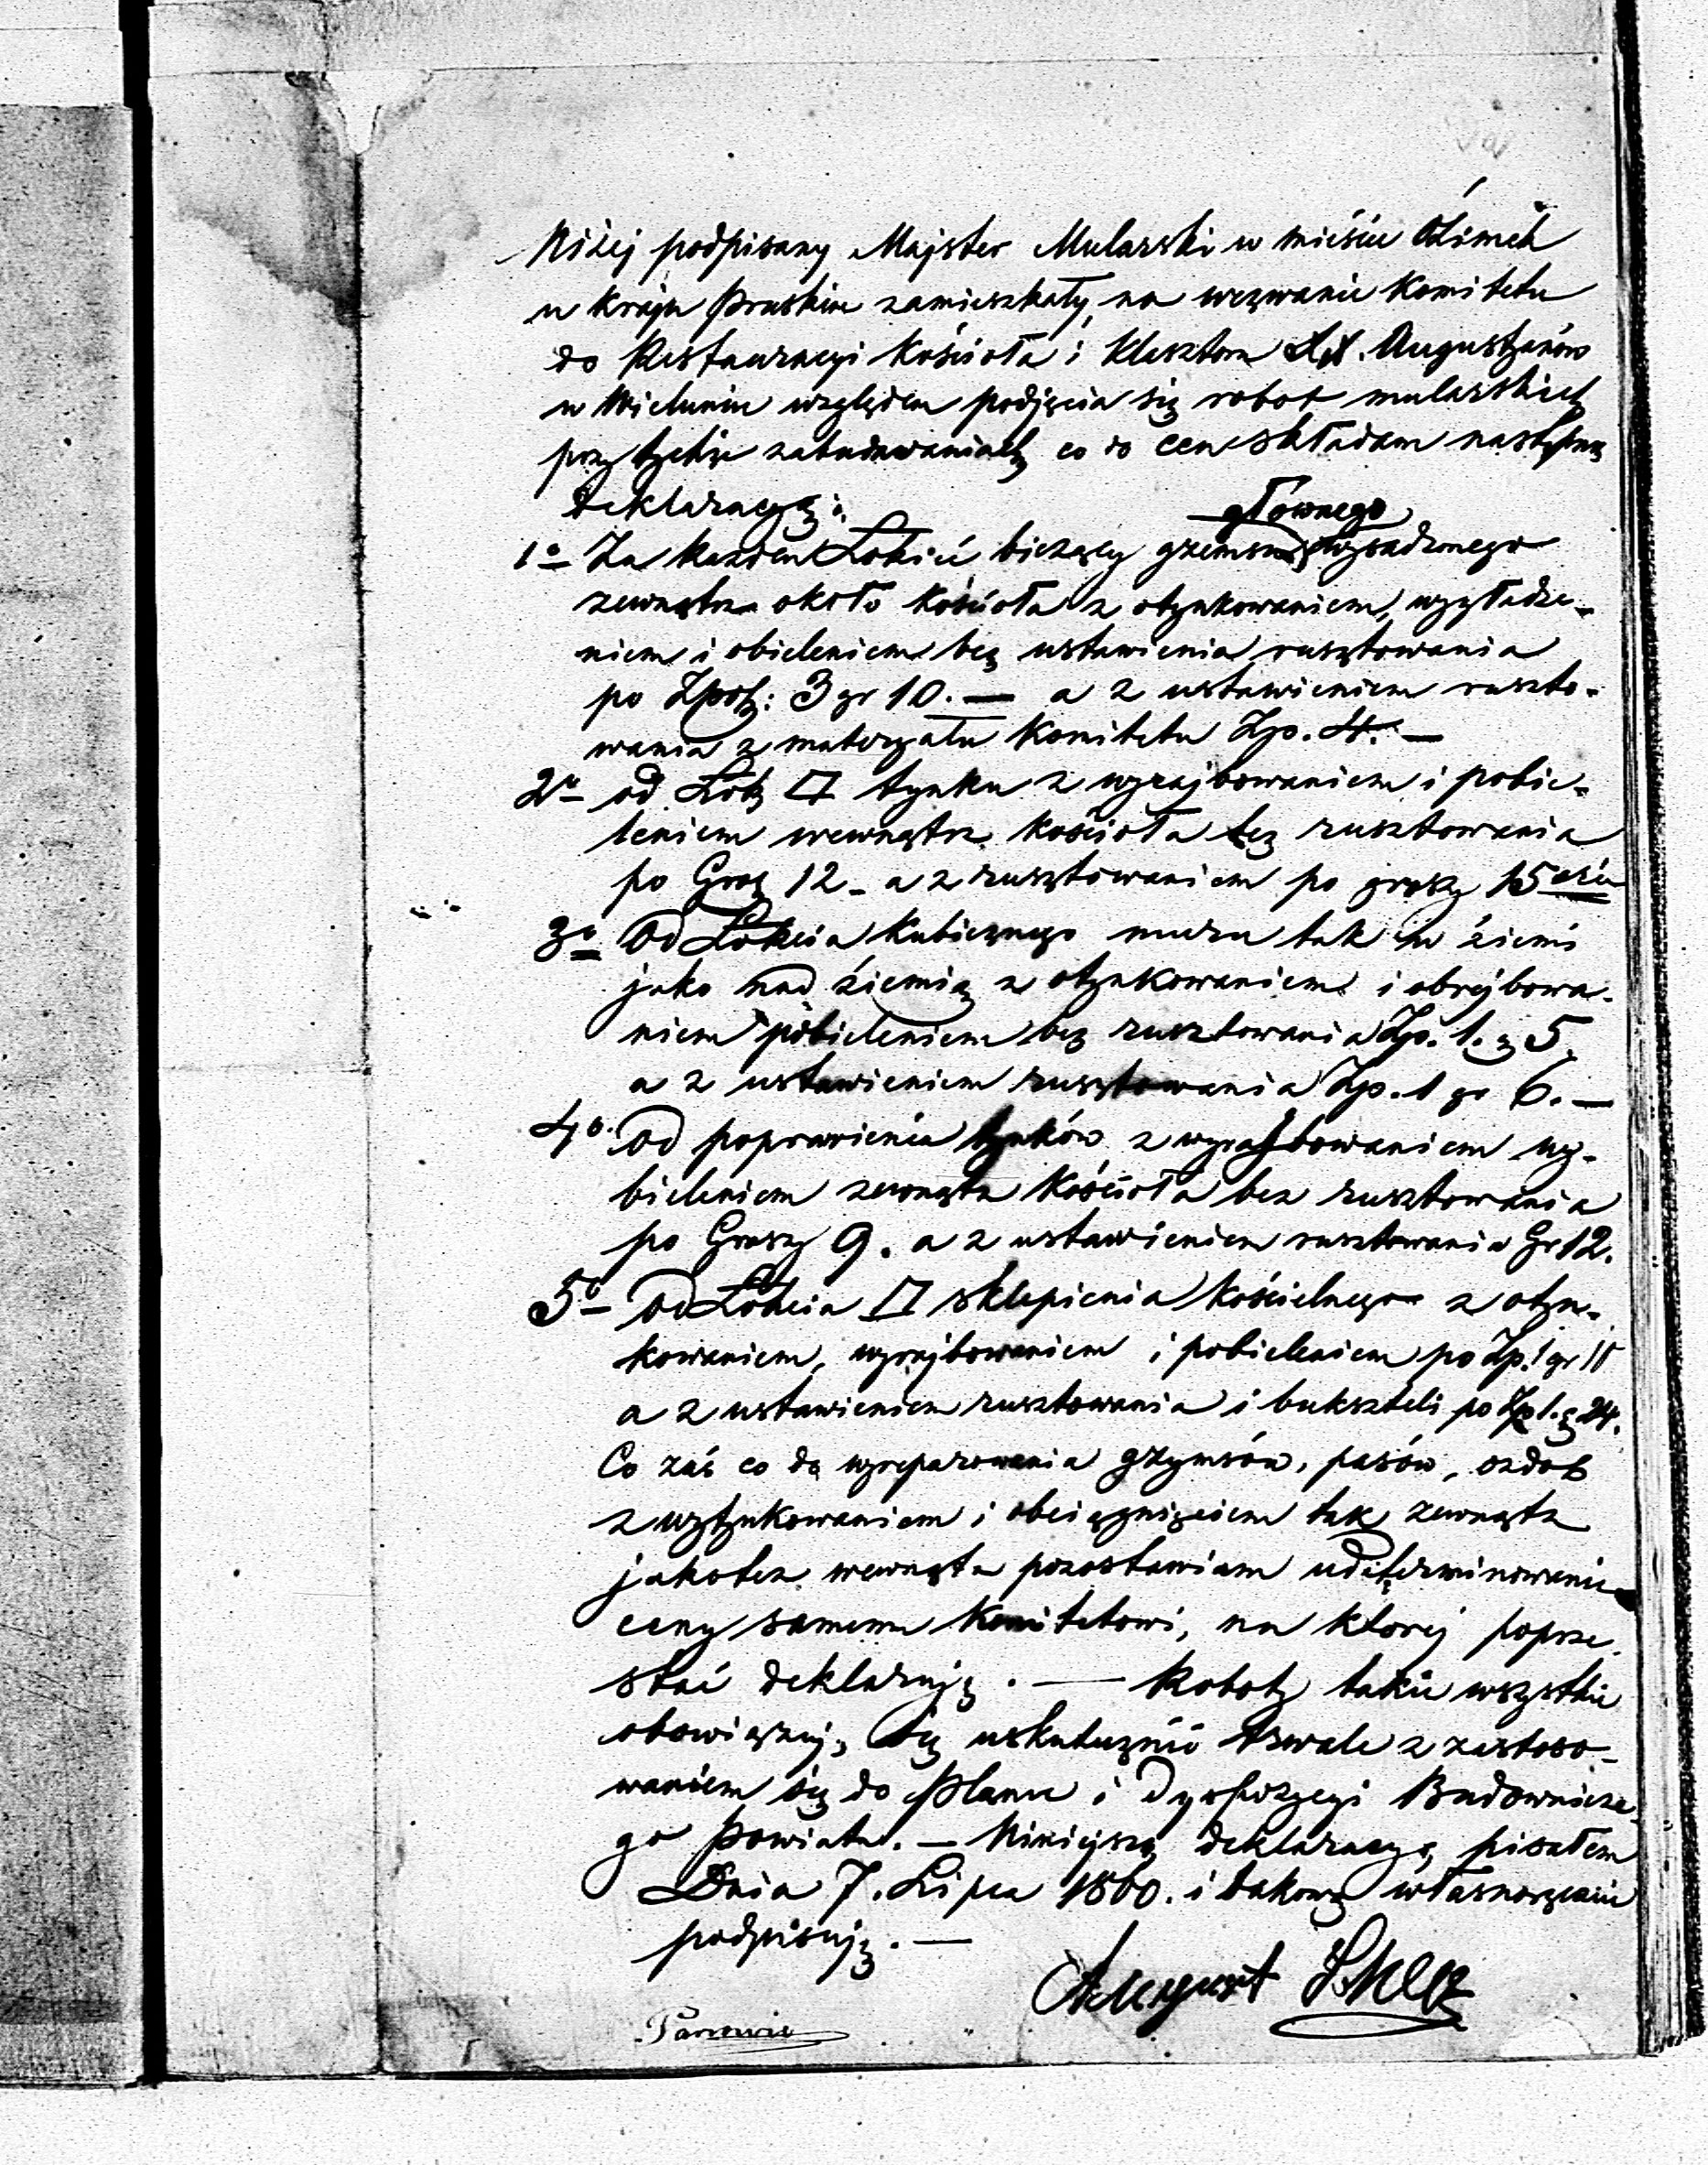 Niżej podpisany Majster Mularski w mieście
w kraju Pruskim zamieszkały, na wezwanie Komitetu
do Restauracyi Kościoła i Klasztoru XX. Augustyanów
w Wieluniu względem podjęcia się robot mularskich
przy tychże zabudowaniach co do cen składam następną
deklaracyą:
głównego
1o Za każden Łokieć bieżący gzemsu wysadzonego
zewnątrz około Kościoła z otynkowaniem, wygładze-
niem i obieleniem bez ustawienia rusztowania
po Złpol: 3 gr 10. — a z ustawieniem ruszto-
wania z materyału Komitetu Zp. 4. —
2o od Łok □ tynku z wyrajbowaniem i pobie-
leniem wewnątrz kościoła bez rusztowania
po Grosz 12 - a z rusztowaniem po groszy 15
3o Od Łokcia Kubicznego muru tak w ziemi
jako nad ziemią z otynkowaniem i obrajbowa-
niem pobieleniem bez rusztowania Zp. 1. g 5.
a z ustawieniem rusztowania Zp. 1 gr 6. —
4o. Od poprawienia tynków z wyrajbowaniem wy-
bieleniem zewnątrz Kościoła bez rusztowania
po Groszy 9. a z ustawieniem rusztowania Gr 12.
5o Od Łokcia □ sklepienia kościelnego z otyn-
kowaniem, wyrajbowaniem i pobieleniem po Zp. 1 gr
a z ustawieniem rusztowania i bukszteli po Zp 1. g 24.
Co zaś co do wyreparowania gzymsów, pasów, ozdob
z wytynkowaniem i obciągnięciem tak zewnątrz
jakoteż wewnątrz pozostawiam udeterminowanie
ceny samemu Komitetowi, na ktorej poprze-
stać deklaruję. — Roboty takie wszystkie
obowiązuję się uskutecznić trwale z zastoso-
waniem się do Planu i dyspozycyi Budownicze-
go Powiatu. — Niniejszą deklaracyą pisałem
Dnia 7. Lipca 1860. i takową własnoręcznie
podpisuję. —
August